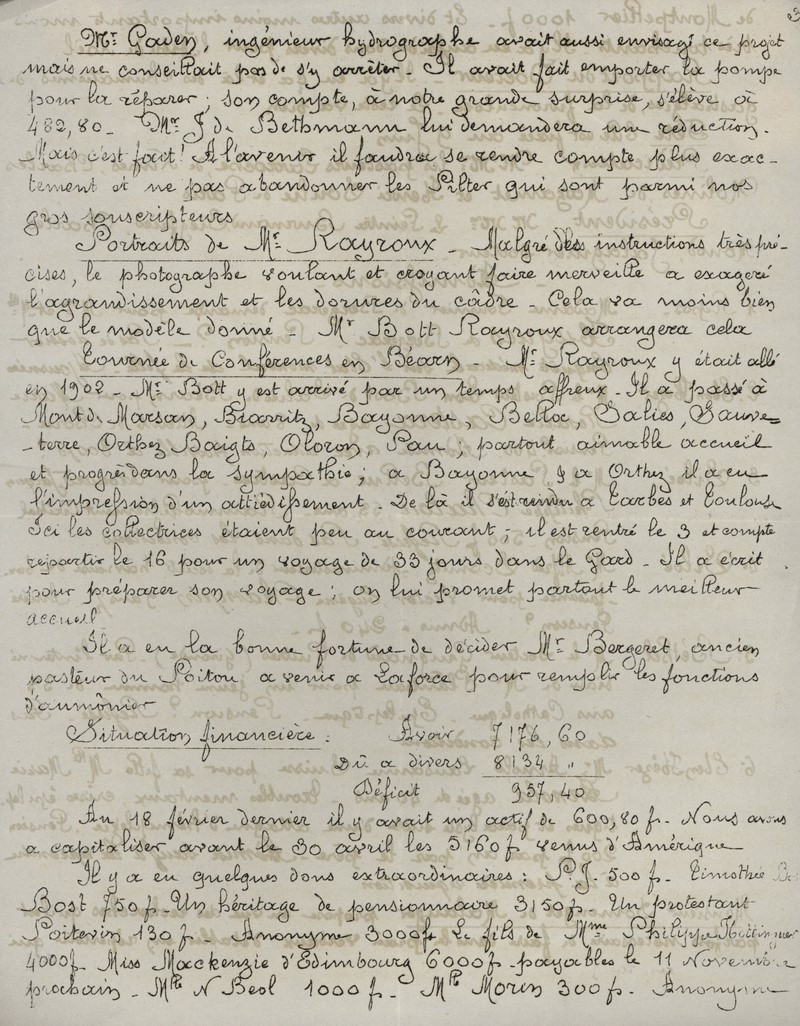 Mr. Gaden, ingénieur hydrographe avait aussi envisagé ce projet
mais ne conseillait pas de s'y arrêter - Il avait fait emporter la pompe
pour la réparer ; son compte, à notre grande surprise, s'élève à
482,80 - Mr J de Bethmann lui demandera une réduction -
Mais c'est fait ! A l'avenir il faudra se rendre compte plus exac-
tement et ne pas abandonner les Pilter qui sont parmi nos
gros souscripteurs
Portraits de Mr. Rayroux - Malgré des instructions très pré-
cises, le photographe voulant et croyant faire merveille a exagéré
l'agrandissement et les dorures du câdre - Cela va moins bien
que le modèle donné - Mr Bott Rayroux arrangera cela
Tournée de Conférences en Béarn - Mr. Rayroux y était allé
en 1902 - Mr. Bott y est arrivé par un temps affreux - Il a passé à
Mont de Marsan, Biarritz, Bayonne, Belloc, Salies, Sauve=
-terre, Orthez Baigts, Oloron, Pau ; partout aimable accueil
et progrès dans la sympathie ; à Bayonne & à Orthez il a eu
l'impression d'un attiédissement - De là il s'est rendu à Tarbes et Toulouse
Ici les collectrices étaient peu au courant ; il est rentré le 3 et compte
repartir le 16 pour un voyage de 33 jours dans le Gard - Il a écrit
pour préparer son voyage ; on lui promet partout le meilleur
accueil
Il a eu la bonne fortune de décider Mr. Bergeret, ancien
pasteur du Poitou à venir à Laforce pour remplir les fonctions
d'aumônier
Situation financière : Avoir 7176,60
Dû à divers 8134 "
Déficit 957,40
Au 18 février dernier il y avait un actif de 600,80 f - Nous avons
à capitaliser avant le 30 avril les 5160 f venus d'Amérique
Il y a eu quelques dons extraordinaires : P.J. 500 f - Timothée
Bost 750 f - Un héritage de pensionnaire 3150 f - Un protestant
Poitevin 130 f - Anonyme 3000 f Le fils de Mme Philippe
4000 f - Miss Mackenzie d'Edimbourg 6000 f - payables le 11 Novembre
prochain - Mlle N Beol 1000 f - Mlle Morin 300 f - Anonyme